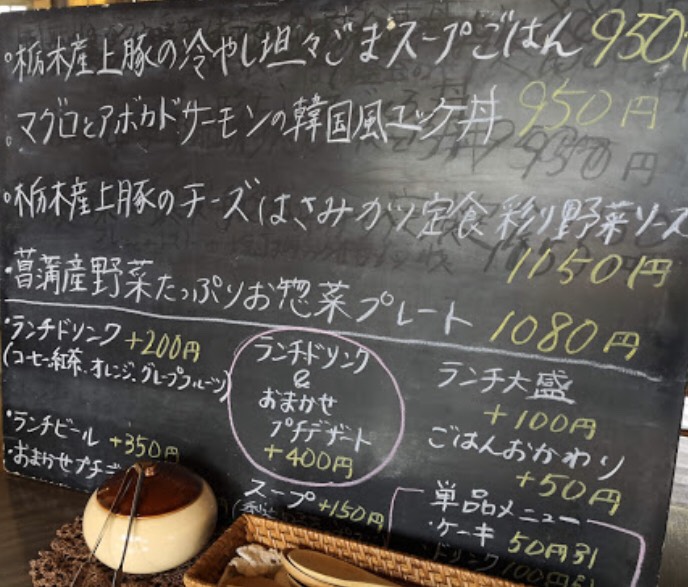 ・栃木産上豚の冷やし坦々ごまスープごはん 950
マグロとアボカドサーモンの韓国風ユッケ丼 950円
・栃木産上豚のチーズはさみカツ定食 彩り野菜ソース
1150円
・菖蒲産野菜たっぷりお惣菜プレート 1080円
・ランチドリンク +200円
(コーヒー、紅茶、オレンジ、グレープフルーツ)
・ランチビール +350円
・おまかせプチデ
ランチドリンク
&
おまかせ
プチデザート
+400円
スープ +150円
ランチ大盛
+100円
ごはんおかわり
+50円
単品メニュー
・ケーキ 50円引
・ドリンク 100円引